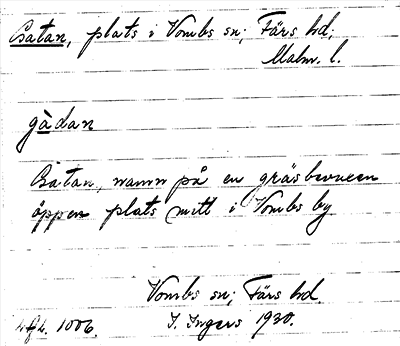 Gatan, plats i Vombs sn; Färs hd;
Malm. l.
gàdan
Gatan, namn på en gräsbevuxen
öppen plats mitt i Vombs by
Vombs sn; Färs hd.
1006. I. Ingers 1930.